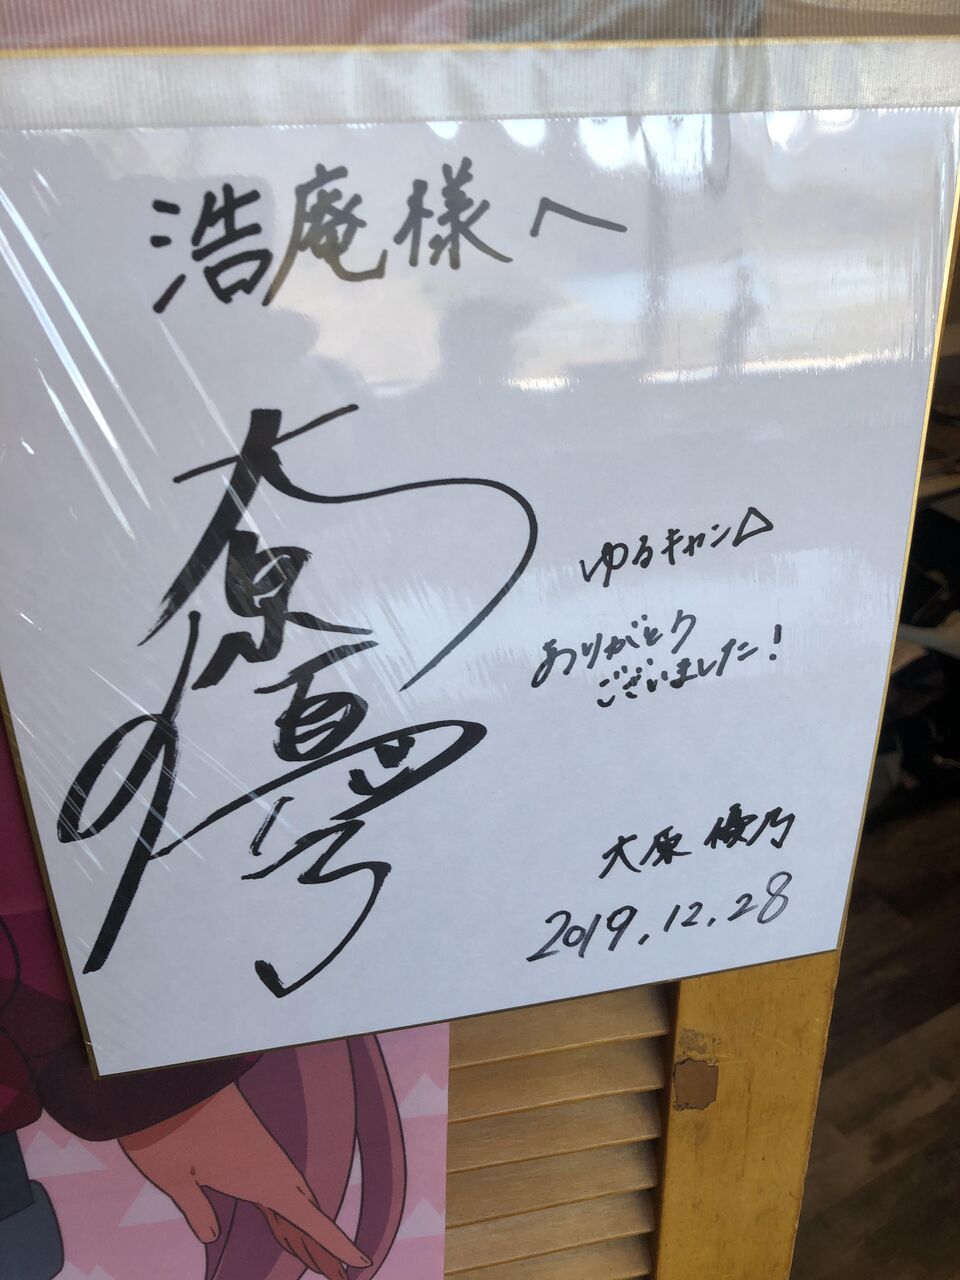 浩庵様へ
大原優乃
ゆるキャン△
ありがとう
ございました!
大原優乃
2019.12.28